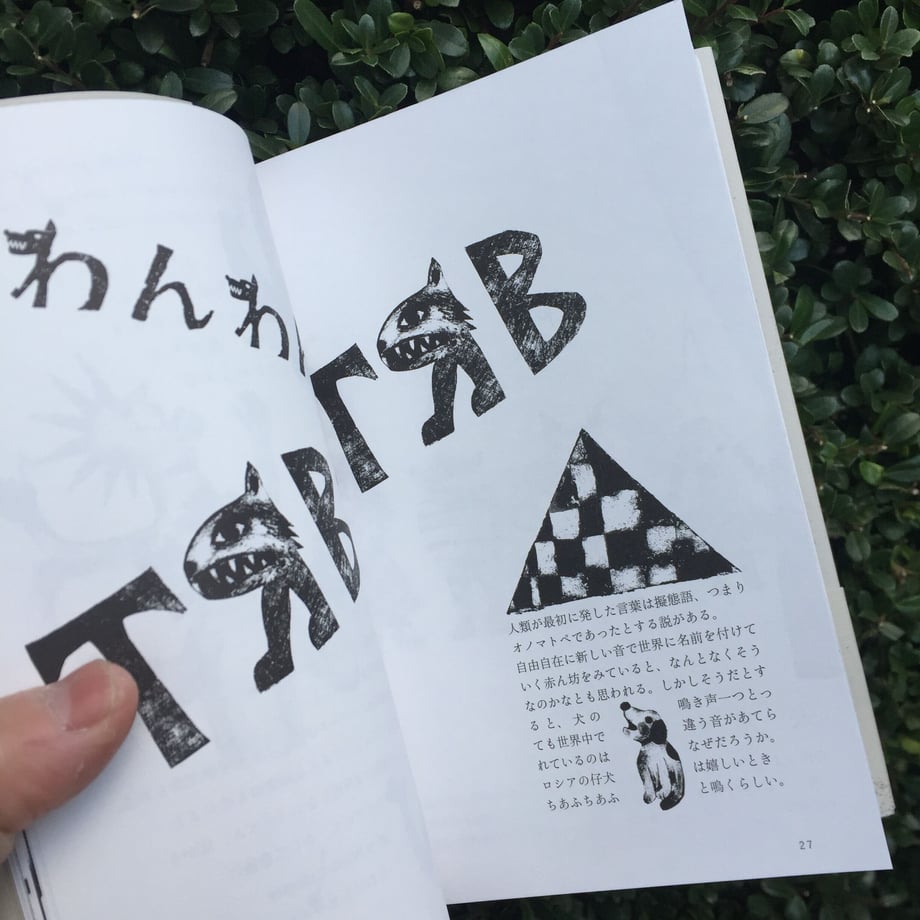 わんわ
ТЯВ
ТЯВ
人類が最初に発した言葉は擬態語、つまり
オノマトペであったとする説がある。
自由自在に新しい音で世界に名前を付けて
いく赤ん坊をみていると、なんとなくそう
なのかなとも思われる。しかしそうだとす
ると、犬の鳴き声一つとっ
ても世界中で違う音があてら
れているのはなぜだろうか。
ロシアの仔犬は嬉しいとき
ちあふちあふと鳴くらしい。
27